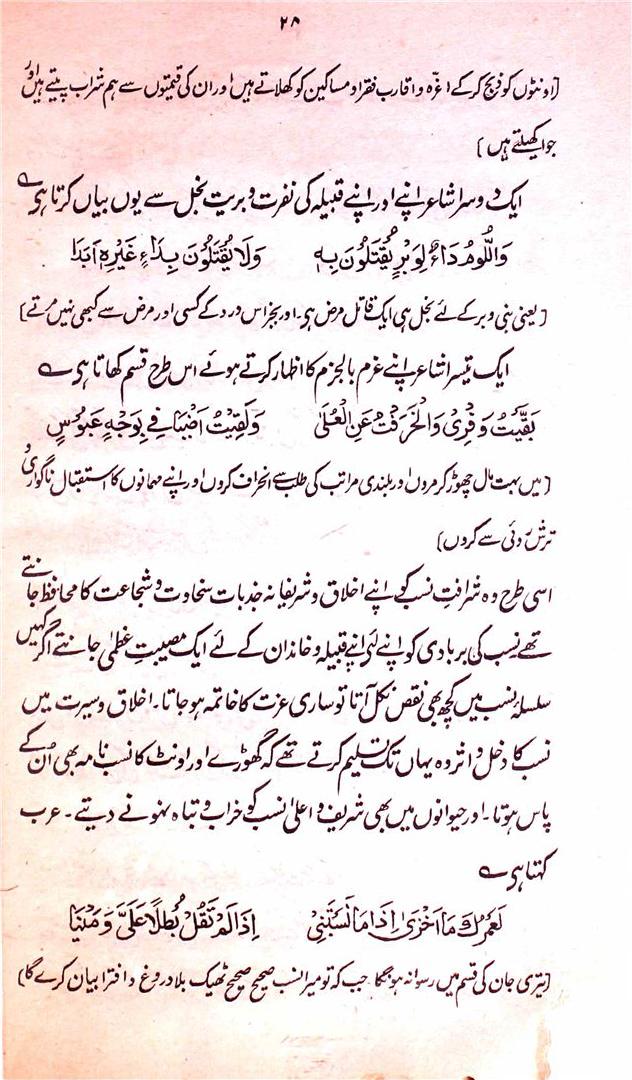 ۲۸
[اونٹوں کو ذبح کر کے اعزہ و اقارب فقرا و مساکین کو کھلاتے ہیں اور ان کی قیمتوں سے ہم شراب پیتے ہیں اور
جوا کھیلتے ہیں]
ایک دوسرا شاعر اپنے اور اپنے قبیلہ کی نفرت و بریت بخل سے یوں بیاں کرتا ہی ؎
وَاللُّومُ دَاءٌ لِوَبْرٍ يُقْتَلُونَ بِهِ وَلَا يُقْتَلُونَ بِدَاءٍ غَيْرِهِ اَبَدَا
[یعنی بنی وبر کے لئے بخل ہی ایک قاتل مرض ہی۔ اور بجز اس درد کے کسی اور مرض سے کبھی نہیں مرتے]
ایک تیسرا شاعر اپنے عزم بالجزم کا اظہار کرتے ہوئے اس طرح قسم کھاتا ہی ؎
بَقَّيْتُ وَفْرِىْ وَانْحَرَفْتُ عَنِ الْعُلَىٰ وَلَقِيْتُ اَضْيَافِىْ بِوَجْهٍ عَبُوْسٍ
[میں بہت مال چھوڑ کر مروں اور بلندی مراتب کی طلب سے انحراف کروں اور اپنے مہمانوں کا استقبال ناگواری و
ترش روئی سے کروں]
اسی طرح وہ شرافتِ نسب کو اپنے اخلاق و شریفانہ جذبات سخاوت و شجاعت کا محافظ جانتے
تھے نسب کی بربادی کو اپنے لئے اپنے قبیلہ و خاندان کے لئے ایک مصیبتِ عظمیٰ جانتے اگر کہیں
سلسلۂ نسب میں کچھ بھی نقص نکل آتا تو ساری عزت کا خاتمہ ہو جاتا۔ اخلاق و سیرت میں
نسب کا دخل و اثر وہ یہاں تک تسلیم کرتے تھے کہ گھوڑے اور اونٹ کا نسب نامہ بھی اُن کے
پاس ہوتا۔ اور حیوانوں میں بھی شریف و اعلیٰ نسب کو خراب و تباہ نہونے دیتے۔ عرب
کہتا ہی ؎
لَعَمْرُكَ مَا اَخْزىٰ اِذَا مَا نَسَبْتَنِىْ اِذَا لَمْ تَقُلْ بُطْلًا عَلَىَّ وَمَيْنَا
[تیری جان کی قسم میں رسوا نہ ہوگا جب کہ تو میرا نسب صحیح صحیح ٹھیک بلا دروغ و افترا بیان کرے گا]